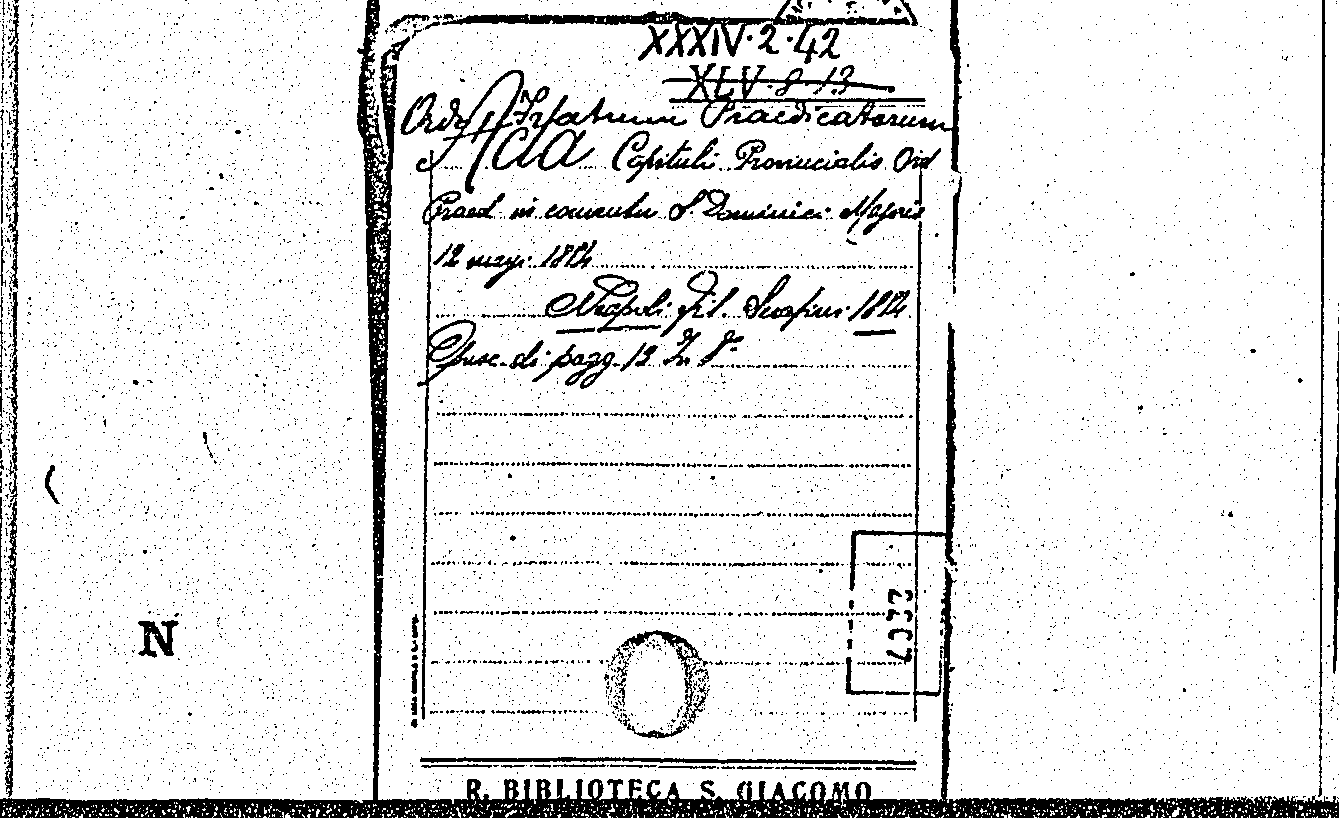 XXXIV·2·42
XLV·8·13
Ordo Fratrum Praedicatorum
Acta Capituli Provincialis Ord
Praed in conventu S. Dominici Majoris
12 maji
Neapoli
Opusc. di pagg. 13 In 8°
N
R. BIBLIOTECA S. GIACOMO